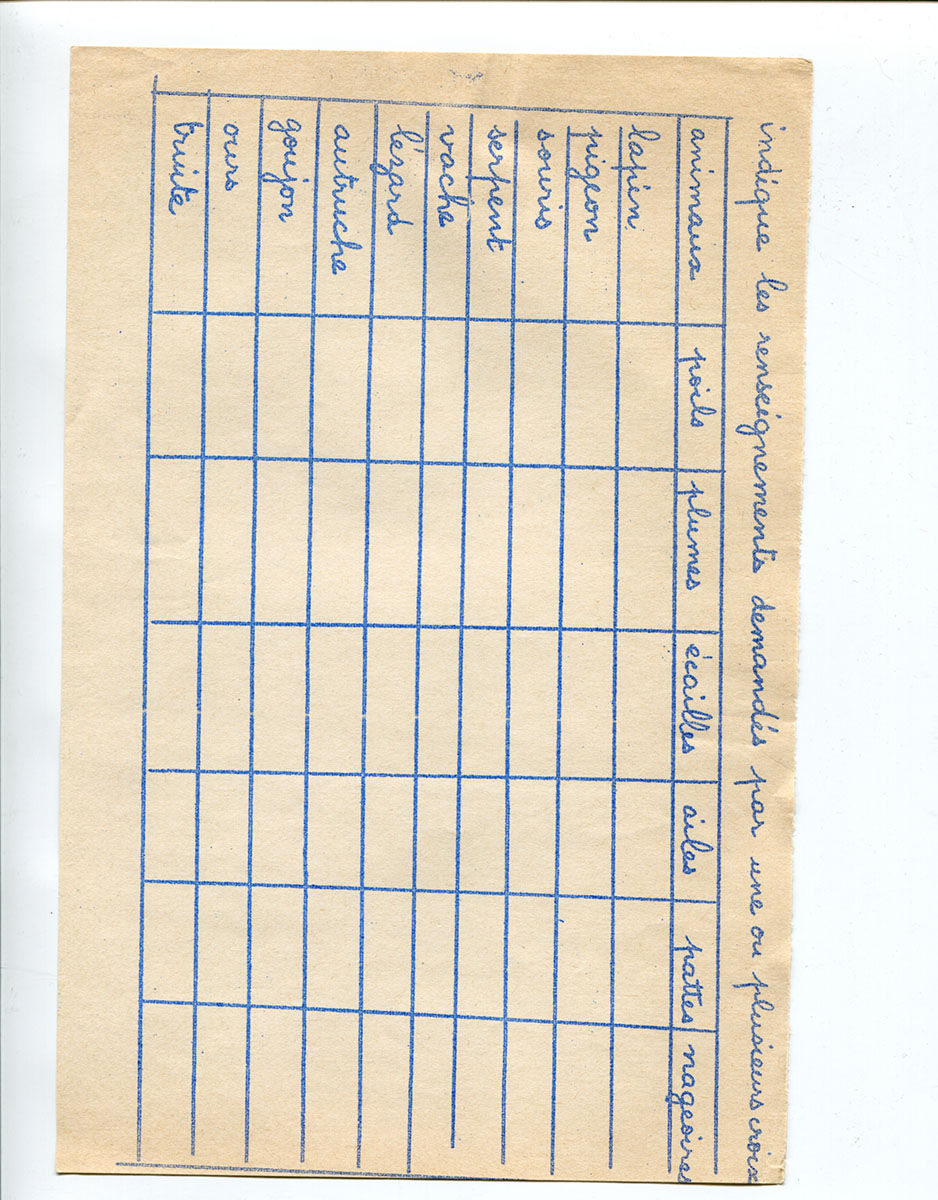 indique les renseignements demandés par une ou plusieurs croix
animaux poils plumes écailles ailes pattes nageoires
lapin
pigeon
souris
serpent
vache
lézard
autruche
goujon
ours
truite